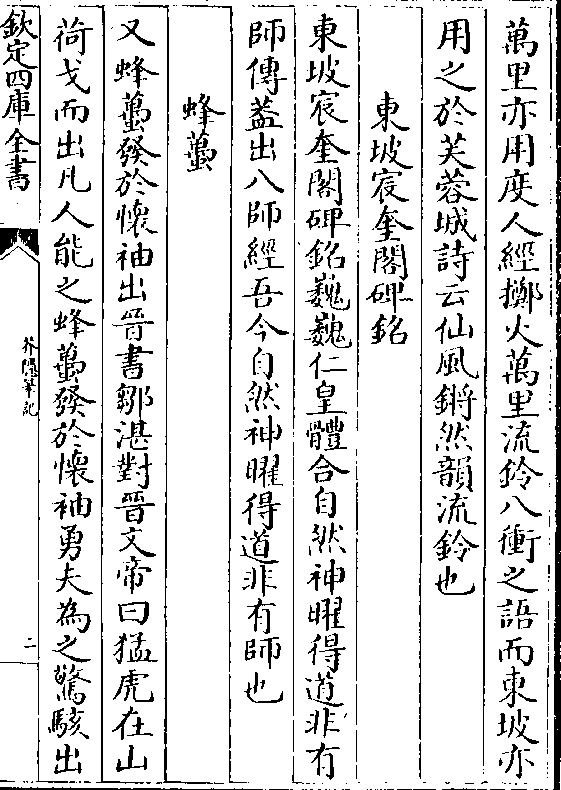 萬里亦用度人經擲火萬里流鈴八衝之語而東坡亦
用之於芙蓉城詩云仙風鏘然韻流鈴也
東坡宸奎閣碑銘
東坡宸奎閣碑銘巍巍仁皇體合自然神曜得道非有
師傳蓋出八師經吾今自然神曜得道非有師也
蜂蠆
又蜂蠆發於懷袖出晉書鄒湛對晉文帝曰猛虎在山
荷戈而出凡人能之蜂蠆發於懷袖勇夫為之驚駭出
欽定四庫全書
芥隱筆記
二